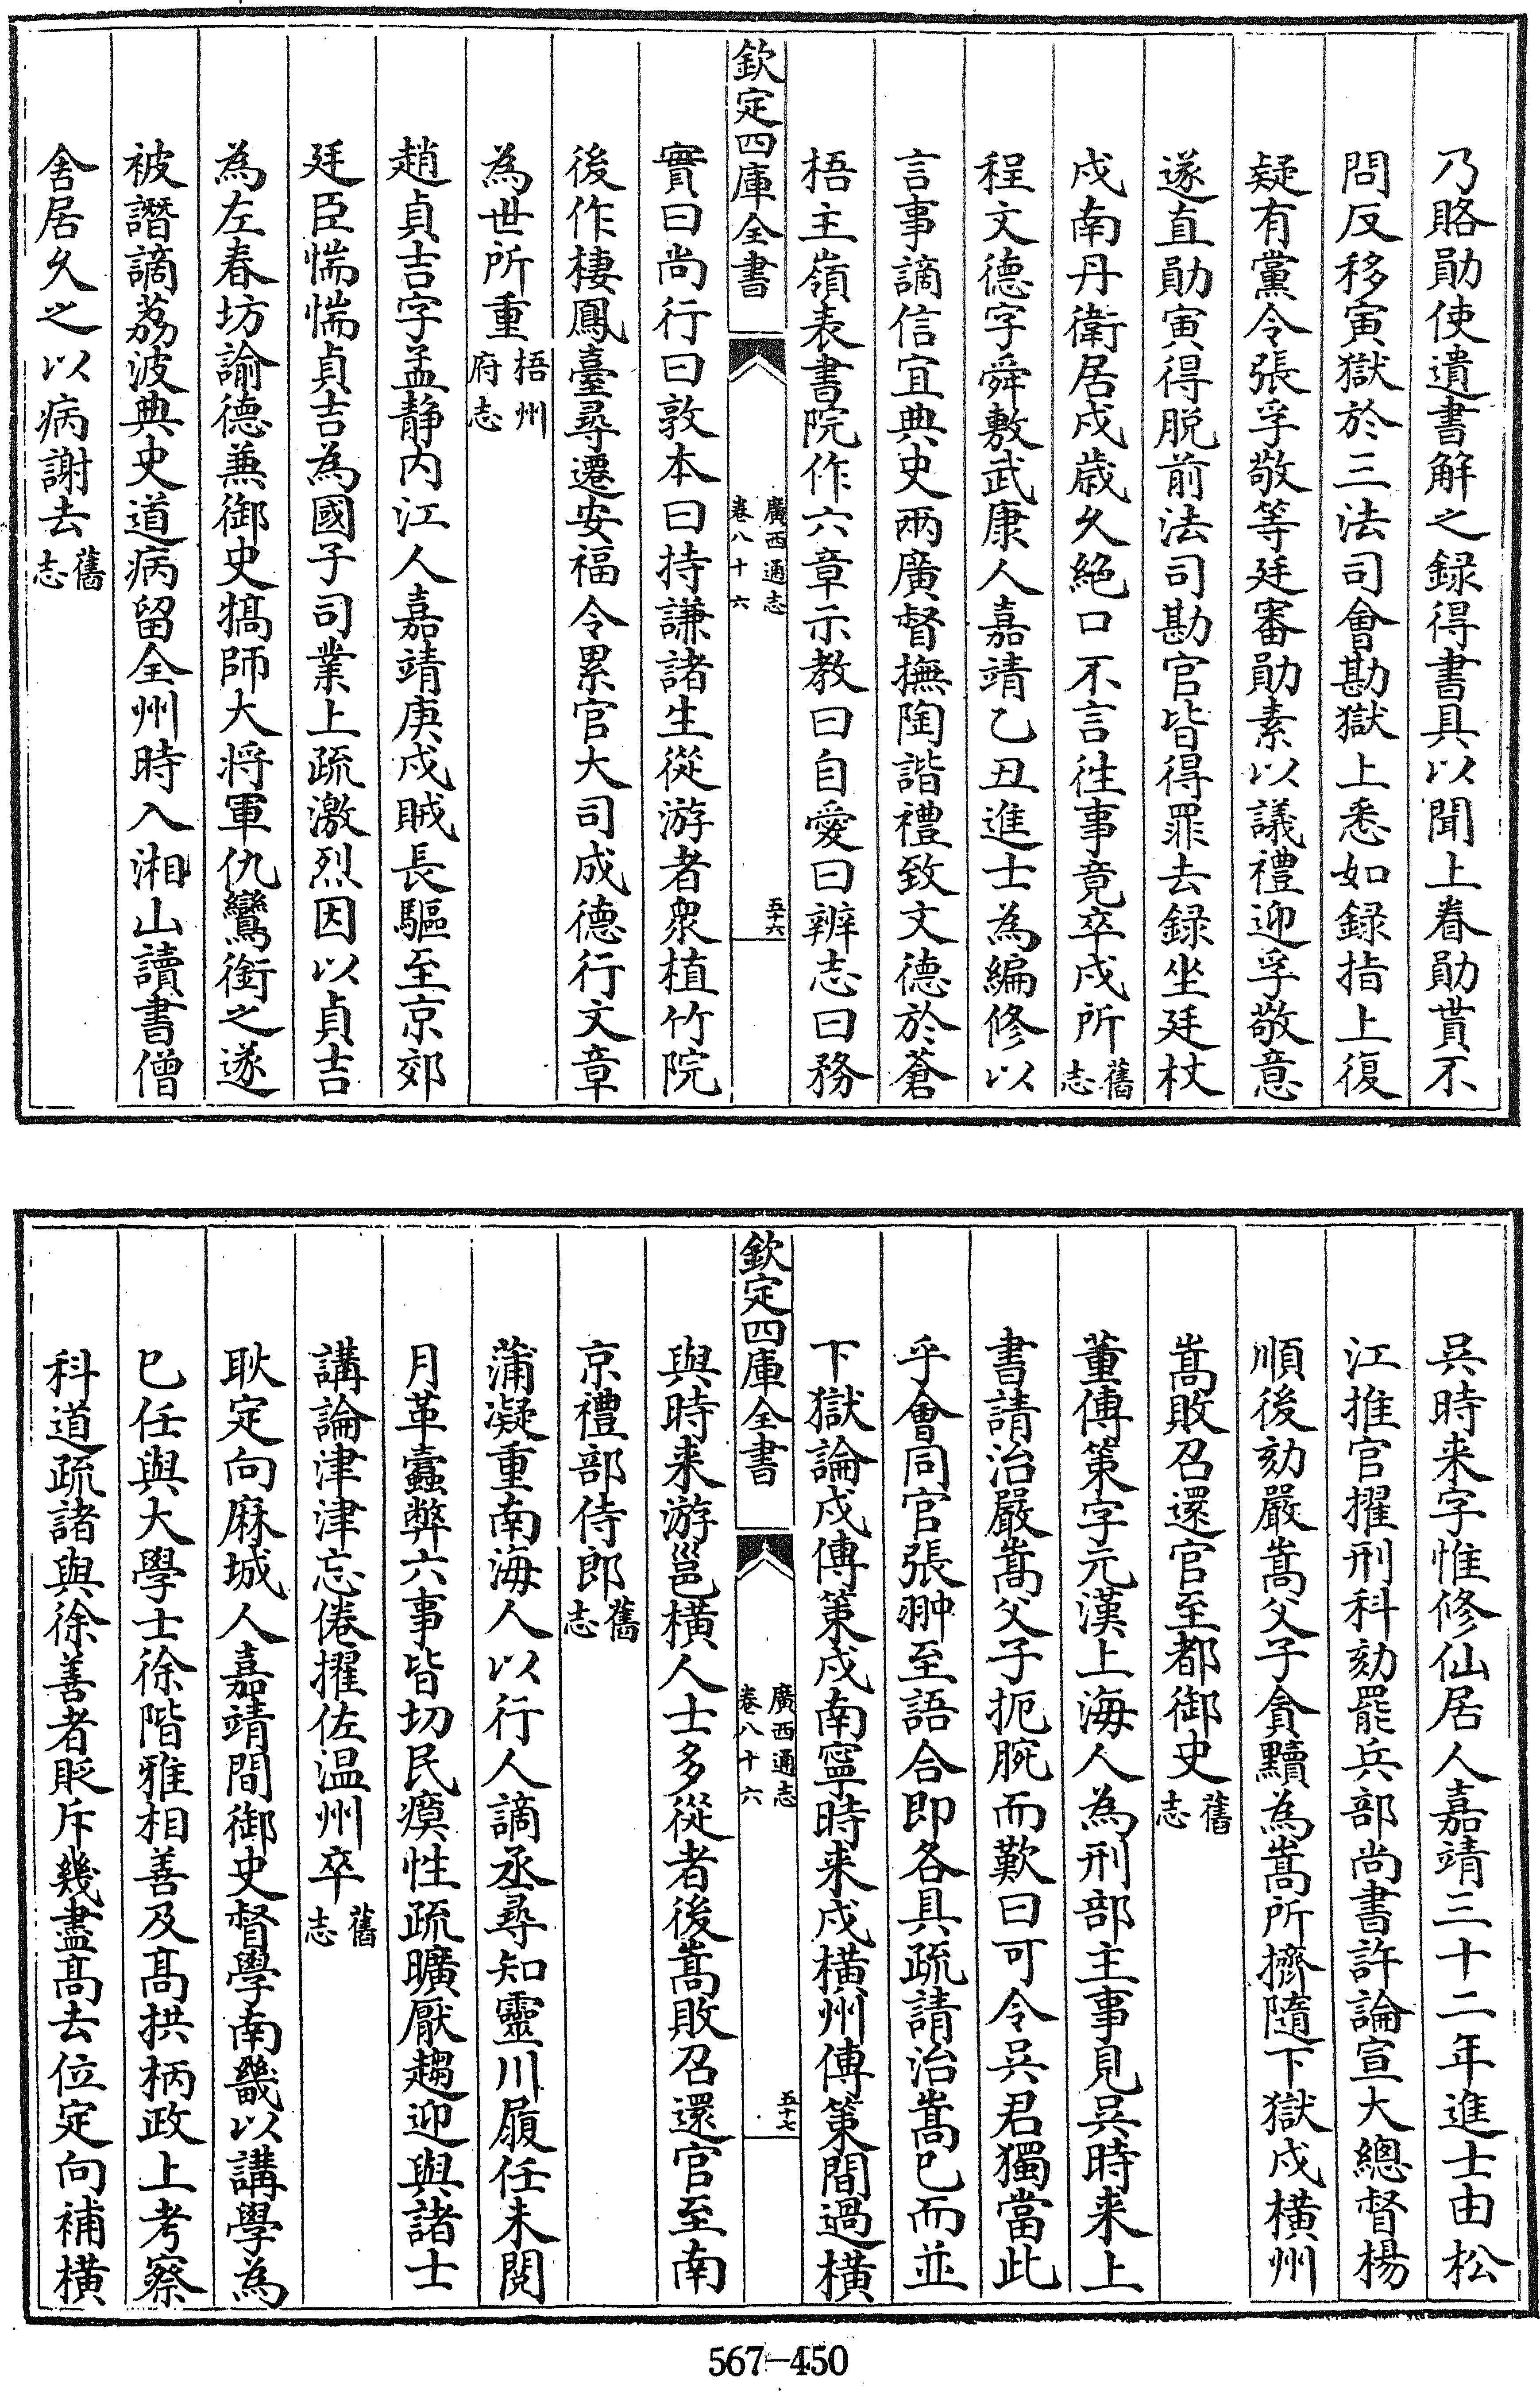 乃賂勛使遺書解之録得書具以聞上眷勛貰不
問反移寅獄於三法司會勘獄上悉如録指上復
疑有黨令張孚敬等廷審勛素以議禮迎孚敬意
遂直勛寅得脱前法司勘官皆得罪去録坐廷杖
戍南丹衛居戍歲久絶口不言徃事竟卒戍所舊志
程文德字舜敷武康人嘉靖乙丑進士為編修以
言事謫信宜典史兩廣督撫陶諧禮致文德於蒼
梧主嶺表書院作六章示教曰自愛曰辨志曰務
欽定四庫全書
廣西通志
卷八十六
五十六
實曰尚行曰敦本曰持謙諸生從游者衆植竹院
後作棲鳳臺尋遷安福令累官大司成德行文章
為世所重梧州府志
趙貞吉字孟静内江人嘉靖庚戍賊長驅至京郊
廷臣惴惴貞吉為國子司業上疏激烈因以貞吉
為左春坊諭德兼御史犒師大将軍仇鸞銜之遂
被譖謫荔波典史道病留全州時入湘山讀書僧
舍居乆之以病謝去舊志
吳時来字惟修仙居人嘉靖三十二年進士由松
江推官擢刑科劾罷兵部尚書許論宣大總督楊
順後劾嚴嵩父子貪黷為嵩所擠隨下獄戍橫州
嵩敗召還官至都御史舊志
董傳策字元漢上海人為刑部主事見吳時来上
書請治嚴嵩父子扼腕而歎曰可令吳君獨當此
乎會同官張翀至語合即各具疏請治嵩已而並
下獄論戍傳策戍南寧時来戍橫州傳策間過橫
欽定四庫全書
廣西通志
卷八十六
五十七
與時来游邕橫人士多從者後嵩敗召還官至南
京禮部侍郎舊志
蒲凝重南海人以行人謫丞尋知靈川履任未閲
月革蠹弊六事皆切民瘼性疏曠厭趨迎與諸士
講論津津忘倦擢佐温州卒舊志
耿定向麻城人嘉靖間御史督學南畿以講學為
已任與大學士徐階雅相善及髙拱柄政上考察
科道疏諸與徐善者貶斥幾盡髙去位定向補橫
567-450